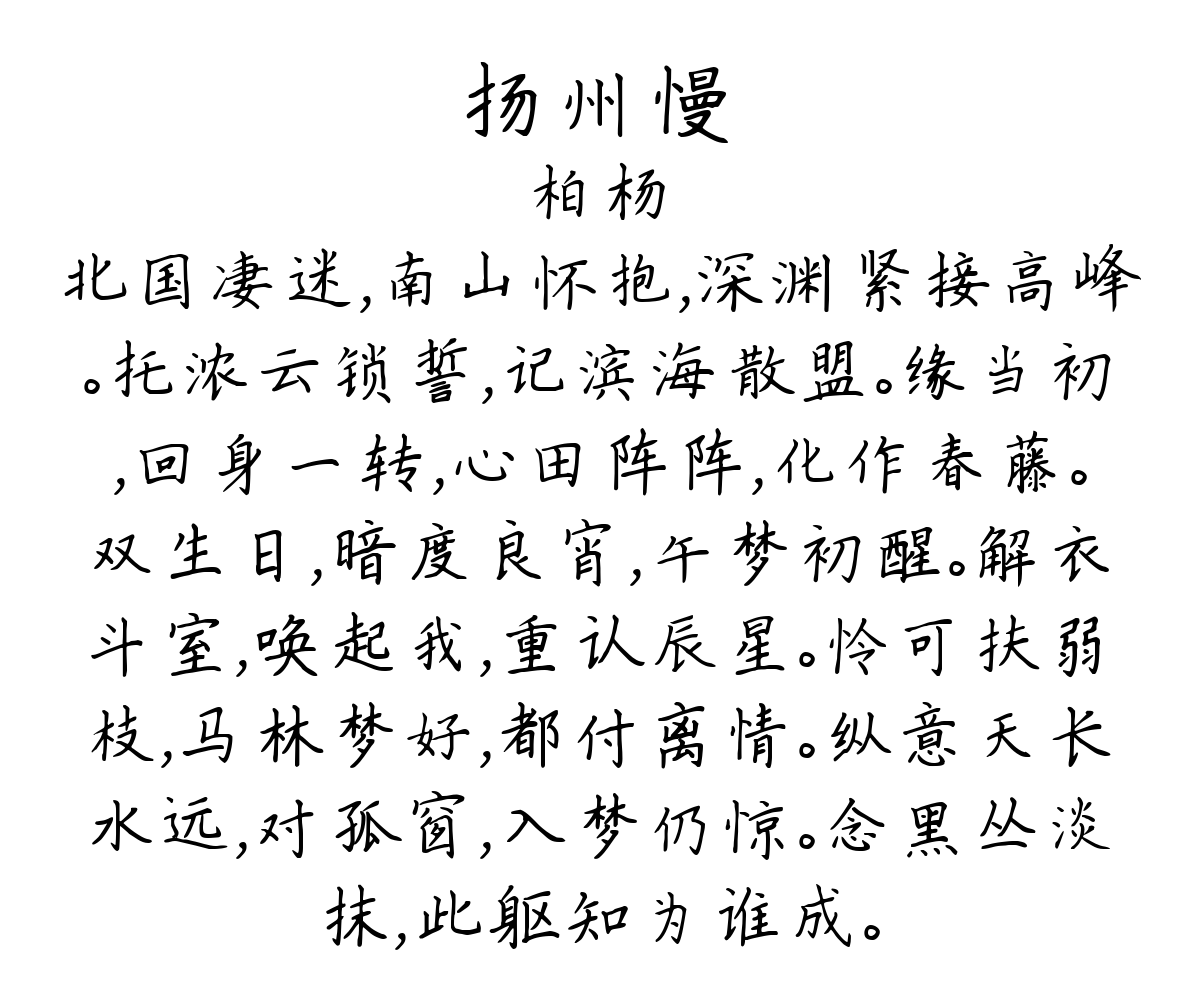 扬州慢
柏杨
北国凄迷,南山怀抱,深渊紧接高峰
。托浓云锁誓,记滨海散盟。缘当初
,回身一转,心田阵阵,化作春藤。
双生日,暗度良宵,午梦初醒。解衣
斗室,唤起我,重认辰星。怜可扶弱
枝,马林梦好,都付离情。纵意天长
水远,对孤窗,入梦仍惊。念黑丛淡
抹,此躯知为谁成。